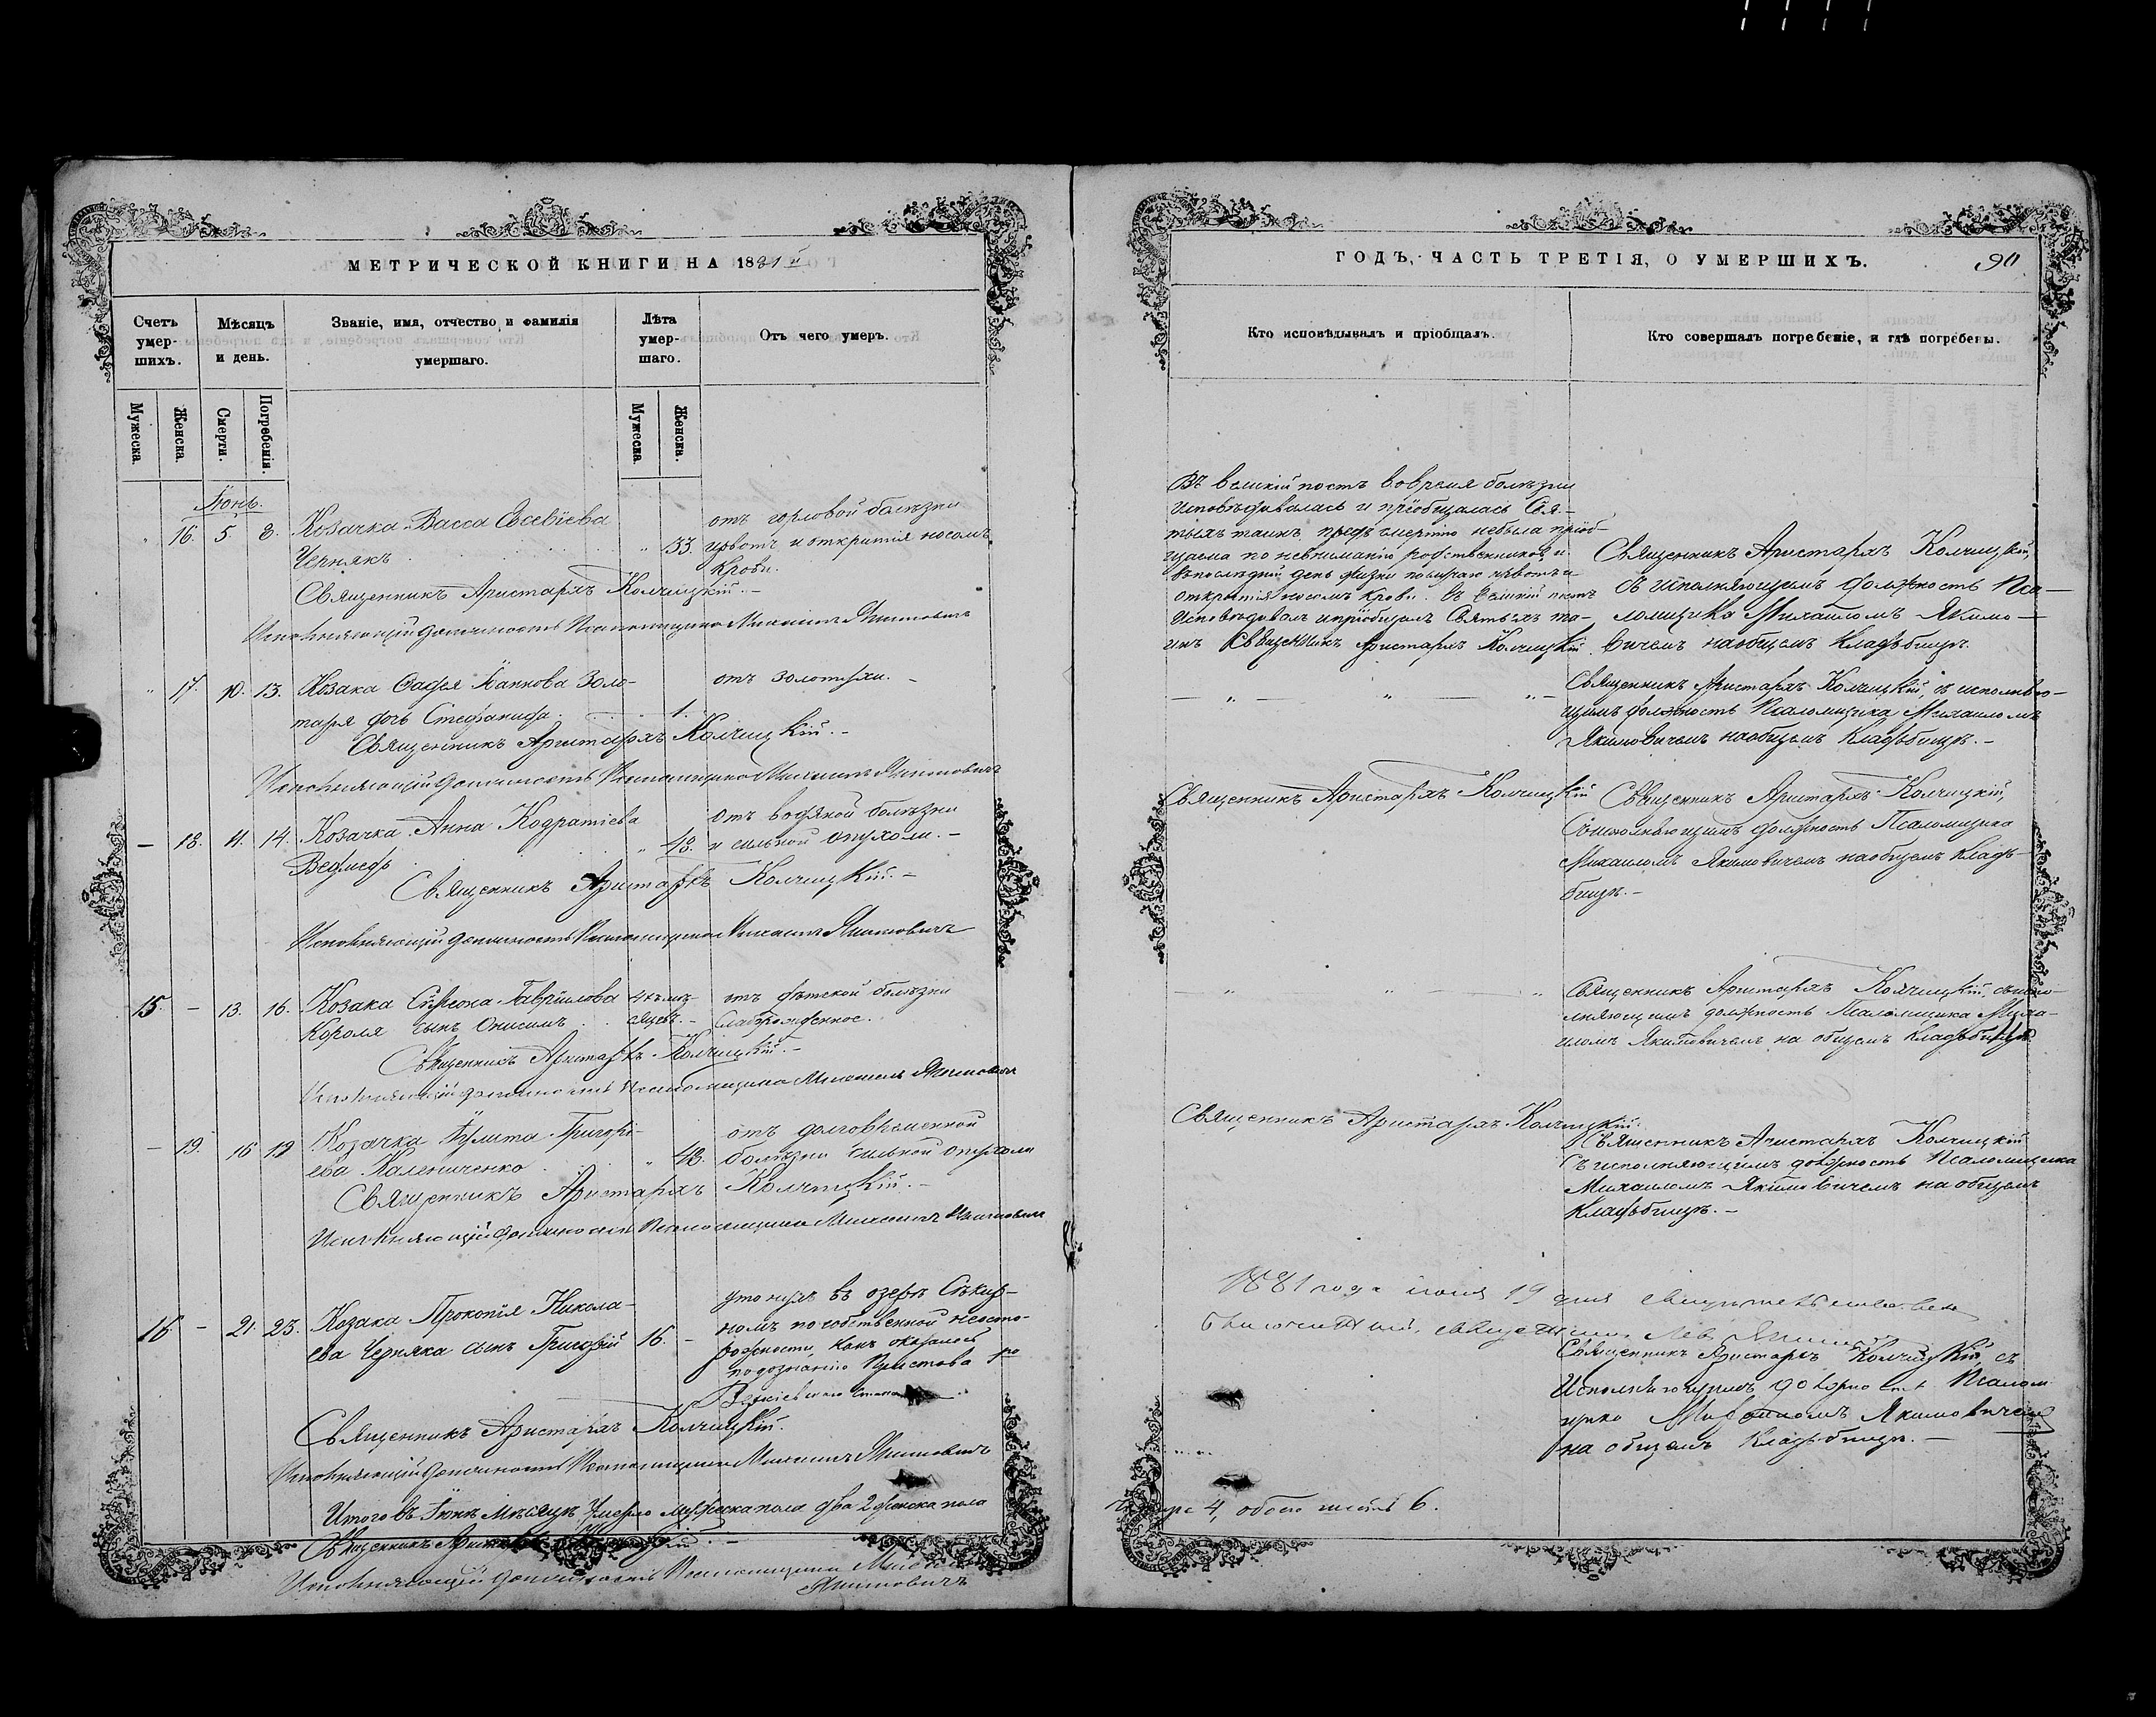 МЕТРИЧЕСКОЙ КНИГИ НА 1881
Счетъ умер-шихъ.
Мѣсяцъ и день.
Званіе, имя, отчество и фамилія умершаго.
Лѣта умер-шаго.
Отъ чего умеръ.
Мужеска.
Женска.
Смерти.
Погребенія.
Мужеска
Женска.
Іюнь.
16. 5 8. Козачка Васса Евсевіева 33. отъ горловой болѣзни
Чернякъ и открытія носомъ
крови.
Священникъ Аристархъ Колчицкій.-
Исполняющій должность Псаломщика Михаилъ Якимовичъ
17. 10. 13. Козака Іоаннова Золо- отъ золотухи.
таря дочь Стефанида 1.
Священникъ Аристархъ Колчицкій.-
Исполняющій должность Псаломщика Михаилъ Якимовичъ
— 18. 11. 14. Козачка Анна Кодратіева 48. отъ водяной болѣзни
и сильной опухоли.-
Священникъ Аристархъ Колчицкій.-
Исполняющій должность Псаломщика Михаилъ Якимовичъ
15. — 13. 16. Козака Симеона Гавріилова 4хъ мѣ- отъ дѣтской болѣзни
Короля сынъ Онисимъ сяцевъ.-
Священникъ Аристархъ Колчицкій.-
Исполняющій должность Псаломщика Михаилъ Якимовичъ
— 19. 16 19 Козачка Іулита Григорі- 48. отъ долговременной
ева Калениченко болѣзни сильной опухоли
Священникъ Аристархъ Колчицкій.-
Исполняющій должность Псаломщика Михаилъ Якимовичъ
16 — 21. 23. Козака Прокопія Никола- 16. — утонулъ въ озерѣ
ева Черняка сынъ Григорій по собственной неосто-
рожности, какъ оказалось
по дознанію Пристава
Священникъ Аристархъ Колчицкій.
Исполняющій должность Псаломщика Михаилъ Якимовичъ
Итого въ Іюнѣ мѣсяцѣ умерло мужеска пола два 2 женска пола
Священникъ
Исполняющій должность Псаломщика
Якимовичъ
ГОДЪ, ЧАСТЬ ТРЕТІЯ, О УМЕРШИХЪ.
90
Кто исповѣдывалъ и пріобщалъ.
Кто совершалъ погребеніе, и гдѣ погребены.
Въ великій постъ во время болѣзни
исповѣдивалась и пріобщалась Свя-
тыхъ таинъ, предъ смертію небыла пріоб-
щаема по невниманію родственниковъ и
въ послѣдній день жизни
открытія носомъ крови. Въ великій постъ
исповѣдовалъ и пріобщалъ Святыхъ та-
инъ Священникъ Аристархъ Колчицкій.
Священникъ Аристархъ Колчицкій,
съ исполняющимъ должность Пса-
ломщика Михаиломъ Якимо-
вичемъ на общемъ кладбищѣ.
Священникъ Аристархъ Колчицкій, съ исполняю-
щимъ должность Псаломщика Михаиломъ
Якимовичемъ на общемъ кладбищѣ.-
Священникъ Аристархъ Колчицкій
Священникъ Аристархъ Колчицкій,
съ исполняющимъ должность Псаломщика
Михаиломъ Якимовичемъ на общемъ клад-
бищѣ.-
Священникъ Аристархъ Колчицкій, съ испо-
лняющимъ должность Псаломщика Миха-
иломъ Якимовичемъ на общемъ кладбищѣ
Священникъ Аристархъ Колчицкій.
Священникъ Аристархъ Колчицкій
съ исполняющимъ должность Псаломщика
Михаиломъ Якимовичемъ на общемъ
кладбищѣ.-
1881 года 19 дня
Священникъ Аристархъ Колчицкій, съ
исполняющимъ должность Псалом-
щика Михаиломъ Якимовичемъ
на общемъ кладбищѣ.-
4, обоего 6.